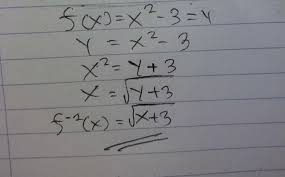 f(x) = x² - 3 = y
y = x² - 3
x² = y + 3
x = √y+3
f⁻²(x) = √x+3